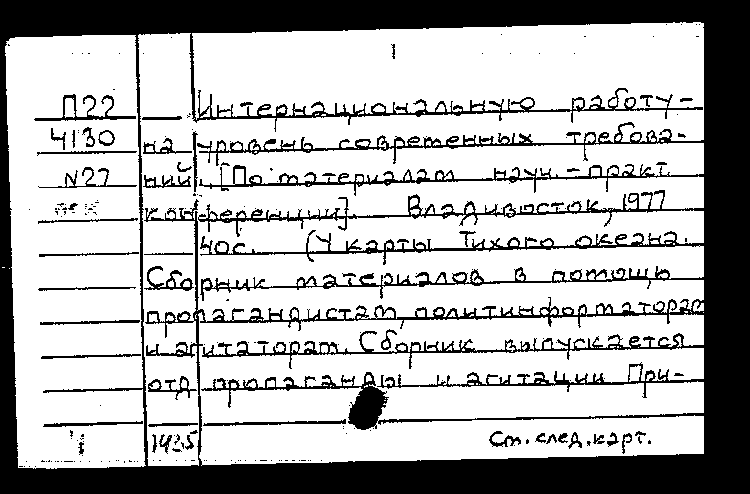 1
П22 Интернациональную работу-
4130 на уровень современных требова-
N27 ний. [По материалам науч.-практ
конференции]. Владивосток, 1977
40с. (У карты Тихого океана.
Сборник материалов в помощь
пропагандистам, политинформаторам
и агитаторам. Сборник выпускается
отд пропаганды и агитации При-
1 1435 См. след. карт.